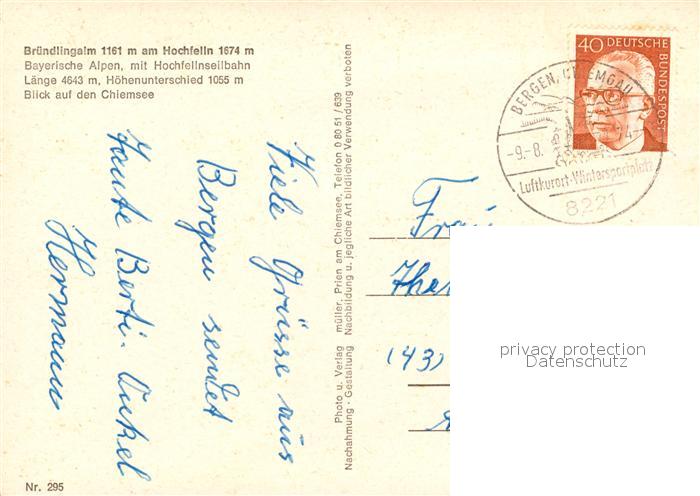 Bründlingalm 1161 m am Hochfelln 1674 m
Bayerische Alpen, mit Hochfellnseilbahn
Länge 4643 m, Höhenunterschied 1055 m
Blick auf den Chiemsee
Viele Grüsse aus
Bergen sendet
Tante Berti. Onkel
Hermann
Nr. 295
Photo u. Verlag müller, Prien am Chiemsee, Telefon 0 80 51 / 639
Nachahmung · Gestaltung Nachbildung u. jegliche Art bildlicher Verwendung verboten
40 DEUTSCHE
BUNDESPOST
BERGEN, CHIEMGAU
-9.-8.
Luftkurort-Wintersportplatz
8221
Frau
(43)
privacy protection
Datenschutz